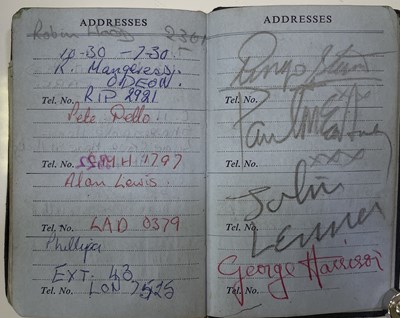 ADDRESSES
Robin 230
10-30 - 7.30
R. Mangeressi.
ODEON.
Tel. No. RIP 2921
Pete Dello
Tel. No. 1797
Alan Lewis.
Tel. No. LAD 0379
Phillipa
EXT. 43
Tel. No. LON 7525
ADDRESSES
Ringo Starr
Tel. No.
Paul McCartney
Tel. No. xxx
John
Tel. No.
Lennon
George Harrison
Tel. No.